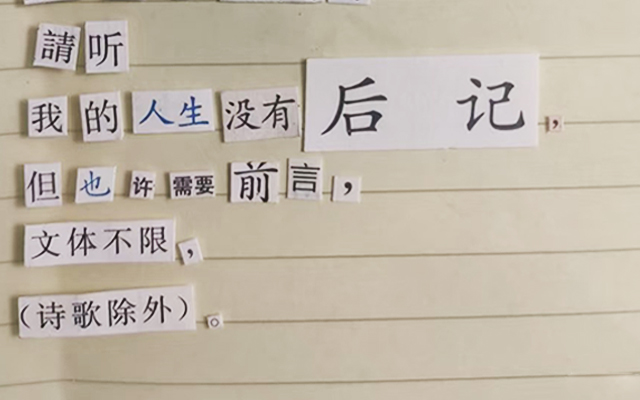 請听
我的人生没有后记，
但也许需要前言，
文体不限，
（诗歌除外）。